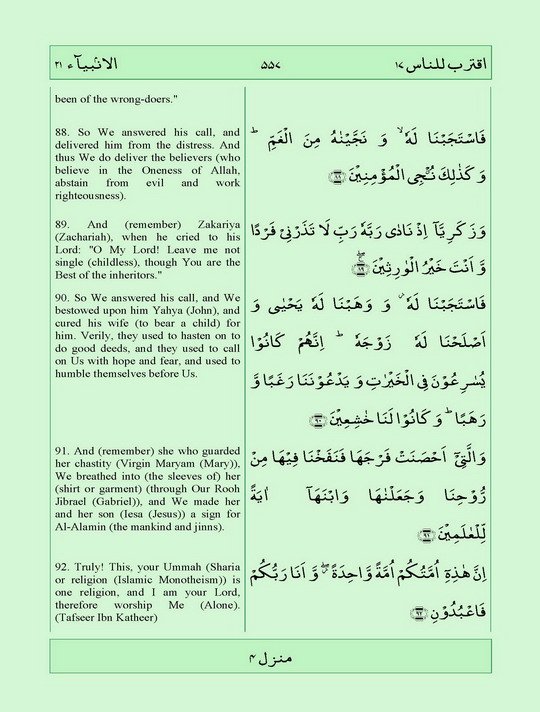 الانبیآء ۲۱
۵۵۷
اقترب للناس ۱۷
been of the wrong-doers."
88. So We answered his call, and
delivered him from the distress. And
thus We do deliver the believers (who
believe in the Oneness of Allah,
abstain from evil and work
righteousness).
89. And (remember) Zakariya
(Zachariah), when he cried to his
Lord: "O My Lord! Leave me not
single (childless), though You are the
Best of the inheritors."
90. So We answered his call, and We
bestowed upon him Yahya (John), and
cured his wife (to bear a child) for
him. Verily, they used to hasten on to
do good deeds, and they used to call
on Us with hope and fear, and used to
humble themselves before Us.
91. And (remember) she who guarded
her chastity (Virgin Maryam (Mary)),
We breathed into (the sleeves of) her
(shirt or garment) (through Our Rooh
Jibrael (Gabriel)), and We made her
and her son (Iesa (Jesus)) a sign for
Al-Alamin (the mankind and jinns).
92. Truly! This, your Ummah (Sharia
or religion (Islamic Monotheism)) is
one religion, and I am your Lord,
therefore worship Me (Alone).
(Tafseer Ibn Katheer)
فَاسْتَجَبْنَا لَهٗ ۙ وَ نَجَّیْنٰهُ مِنَ الْغَمِّ ؕ
وَ كَذٰلِكَ نُـنْجِی الْمُؤْمِنِیْنَ ﴿۸۸﴾
وَ زَكَرِیَّاۤ اِذْ نَادٰی رَبَّهٗ رَبِّ لَا تَذَرْنِیْ فَرْدًا
وَّ اَنْتَ خَیْرُ الْوٰرِثِیْنَ ﴿۸۹﴾ۚۖ
فَاسْتَجَبْنَا لَهٗ ؗ وَ وَهَبْنَا لَهٗ یَحْیٰی وَ
اَصْلَحْنَا لَهٗ زَوْجَهٗ ؕ اِنَّهُمْ كَانُوْا
یُسٰرِعُوْنَ فِی الْخَیْرٰتِ وَ یَدْعُوْنَنَا رَغَبًا وَّ
رَهَبًا ؕ وَ كَانُوْا لَنَا خٰشِعِیْنَ ﴿۹۰﴾
وَ الَّتِیْۤ اَحْصَنَتْ فَرْجَهَا فَنَفَخْنَا فِیْهَا مِنْ
رُّوْحِنَا وَ جَعَلْنٰهَا وَ ابْنَهَاۤ اٰیَةً
لِّلْعٰلَمِیْنَ ﴿۹۱﴾
اِنَّ هٰذِهٖۤ اُمَّتُكُمْ اُمَّةً وَّاحِدَةً ۖؗ وَّ اَنَا رَبُّكُمْ
فَاعْبُدُوْنِ ﴿۹۲﴾
منزل ۴